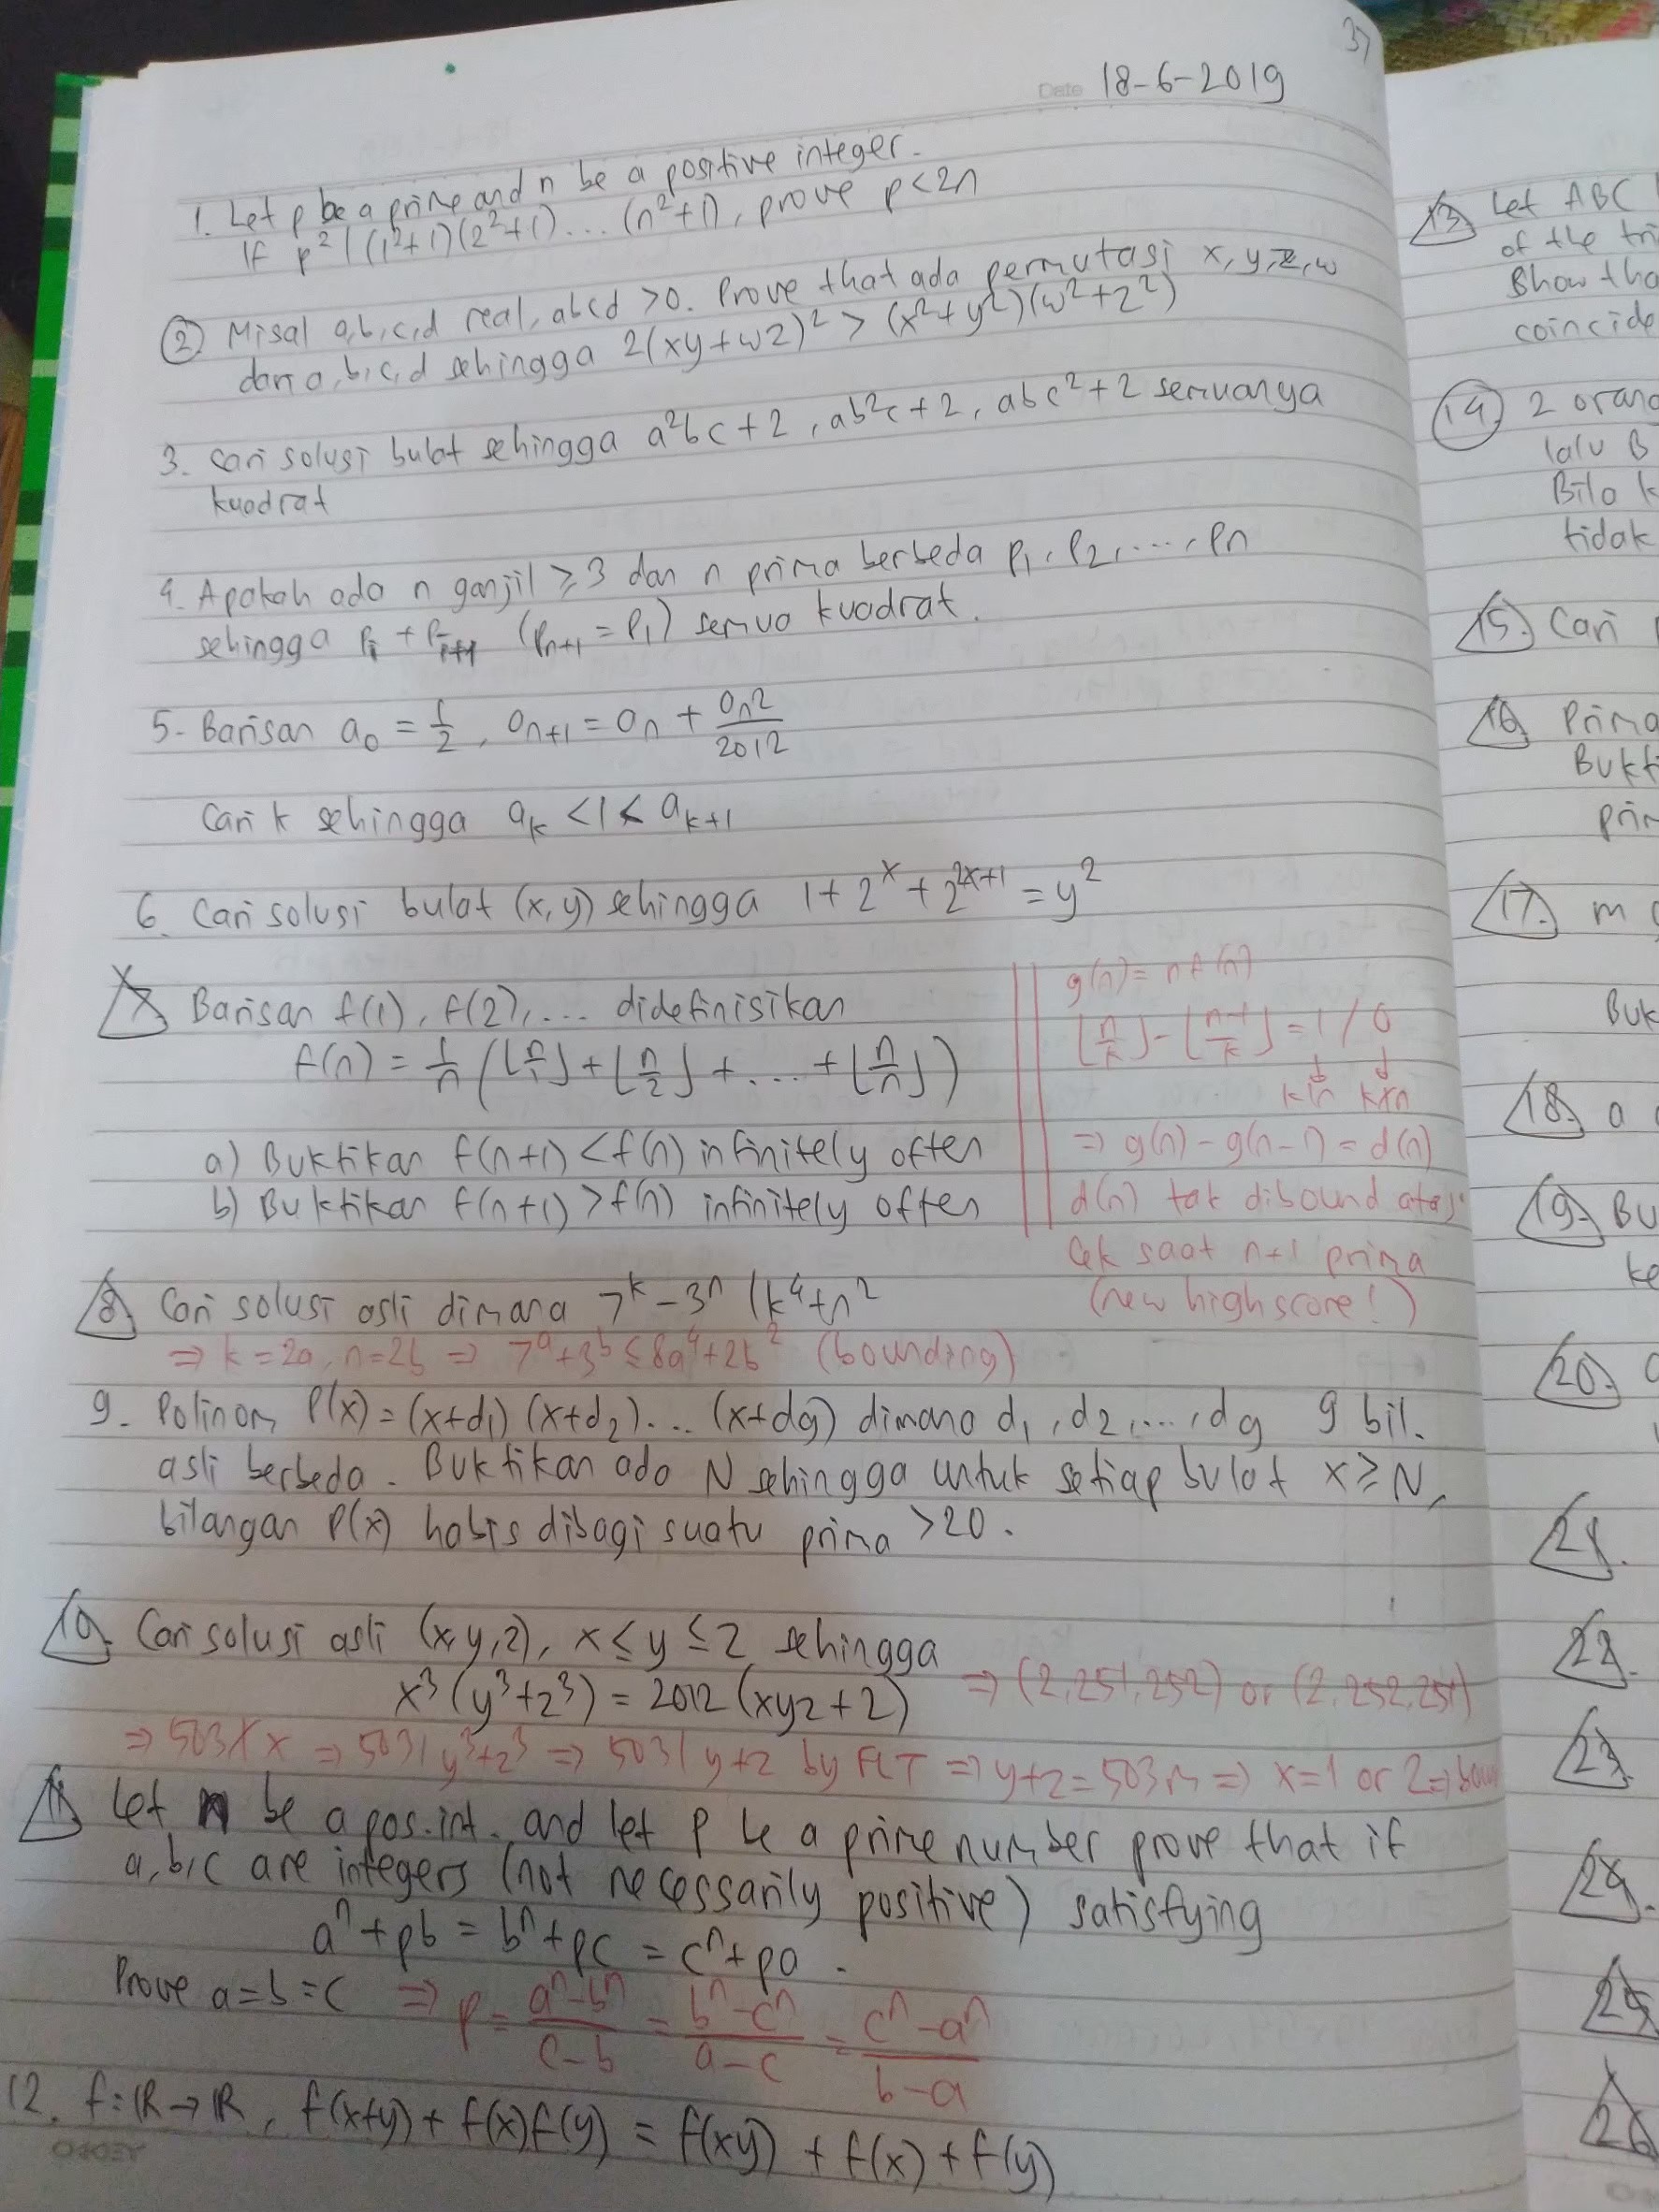 37
Date 18-6-2019
1. Let p be a prime and n be a positive integer.
If p² | (1²+1)(2²+1)... (n²+1), prove p<2n
2. Misal a,b,c,d real, abcd >0. Prove that ada permutasi x,y,z,w
dari a,b,c,d sehingga 2(xy+wz)² > (x²+y²)(w²+z²)
3. Cari solusi bulat sehingga a²bc+2, ab²c+2, abc²+2 semuanya
kuadrat
4. Apakah ada n ganjil ≥3 dan n prima berbeda p₁, p₂, ..., pn
sehingga pi + pi+1 (pn+1 = p1) semua kuadrat.
5. Barisan a₀ = 1/2, an+1 = an + an²/2012
Cari k sehingga ak <1< ak+1
6. Cari solusi bulat (x,y) sehingga 1+2^x+2^(2x+1) = y²
7. Barisan f(1), f(2), ... didefinisikan
f(n) = 1/n (⌊n/1⌋+⌊n/2⌋+...+⌊n/n⌋)
a) Buktikan f(n+1) <f(n) infinitely often
b) Buktikan f(n+1) >f(n) infinitely often
g(n) = nf(n)
⌊n/k⌋-⌊n-1/k⌋ = 1/0
↓ ↓
k|n k∤n
⇒ g(n)-g(n-1) = d(n)
d(n) tak dibound atas
Cek saat n+1 prima
(new highscore!)
8. Cari solusi asli dimana 7^k-3^n | k⁴+n²
⇒ k=2a, n=2b ⇒ 7^a+3^b ≤ 8a⁴+2b² (bounding)
9. Polinom P(x) = (x+d₁)(x+d₂)... (x+d9) dimana d₁, d₂, ..., d9 9 bil.
asli berbeda. Buktikan ada N sehingga untuk setiap bulat x ≥ N,
bilangan P(x) habis dibagi suatu prima >20.
10. Cari solusi asli (x,y,z), x≤y≤z sehingga
x³(y³+z³) = 2012(xyz+2) ⇒ (2,251,252) or (2,252,251)
⇒ 503∤x ⇒ 503|y³+z³ ⇒ 503|y+z by FLT ⇒ y+z = 503m ⇒ x=1 or 2 ⇒
11. Let n be a pos.int. and let p be a prime number prove that if
a,b,c are integers (not necessarily positive) satisfying
a^n+pb = b^n+pc = c^n+pa.
Prove a=b=c ⇒ p = a^n-b^n/c-b = b^n-c^n/a-c = c^n-a^n/b-a
12. f:ℝ→ℝ, f(x+y)+f(x)f(y) = f(xy)+f(x)+f(y)
13. Let ABC
of the
Show
coincide
14. 2 orang
lalu B
Bila
tidak
15. Cari
16. Prima
17. m
18. a
19.
20.
21.
22.
23.
24.
25.
26.